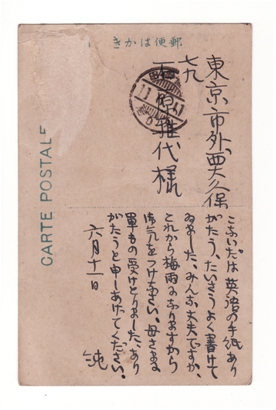 郵便はかき
CARTE POSTALE
東京市外、西大久保
七九
雅代様
こないだは英語の手紙あり
がたう、たいさうよく書けて
ゐました、みんな丈夫ですか、
これから梅雨になりますから
御気をつけなさい。母さまの
軍も受けとりました、あり
がたうと申しあげてください。
六月十一日